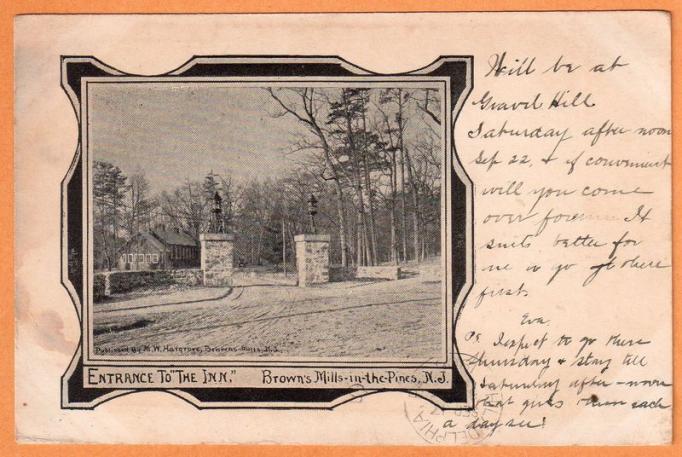 Will be at
Gravel Hill
Saturday after noon
Sep 22, & if convenient
will you come
over for me It
suits better for
me to go there
first.
Eva
PS. I expect to go there
Thursday & stay till
Saturday after-noon
that gives them each
a day see!
Published By M.W. Hargrove, Browns-Mills, N.J.
ENTRANCE TO "THE INN." BROWN'S MILLS-IN-THE-PINES, N.J.
DELPHIA
SEP